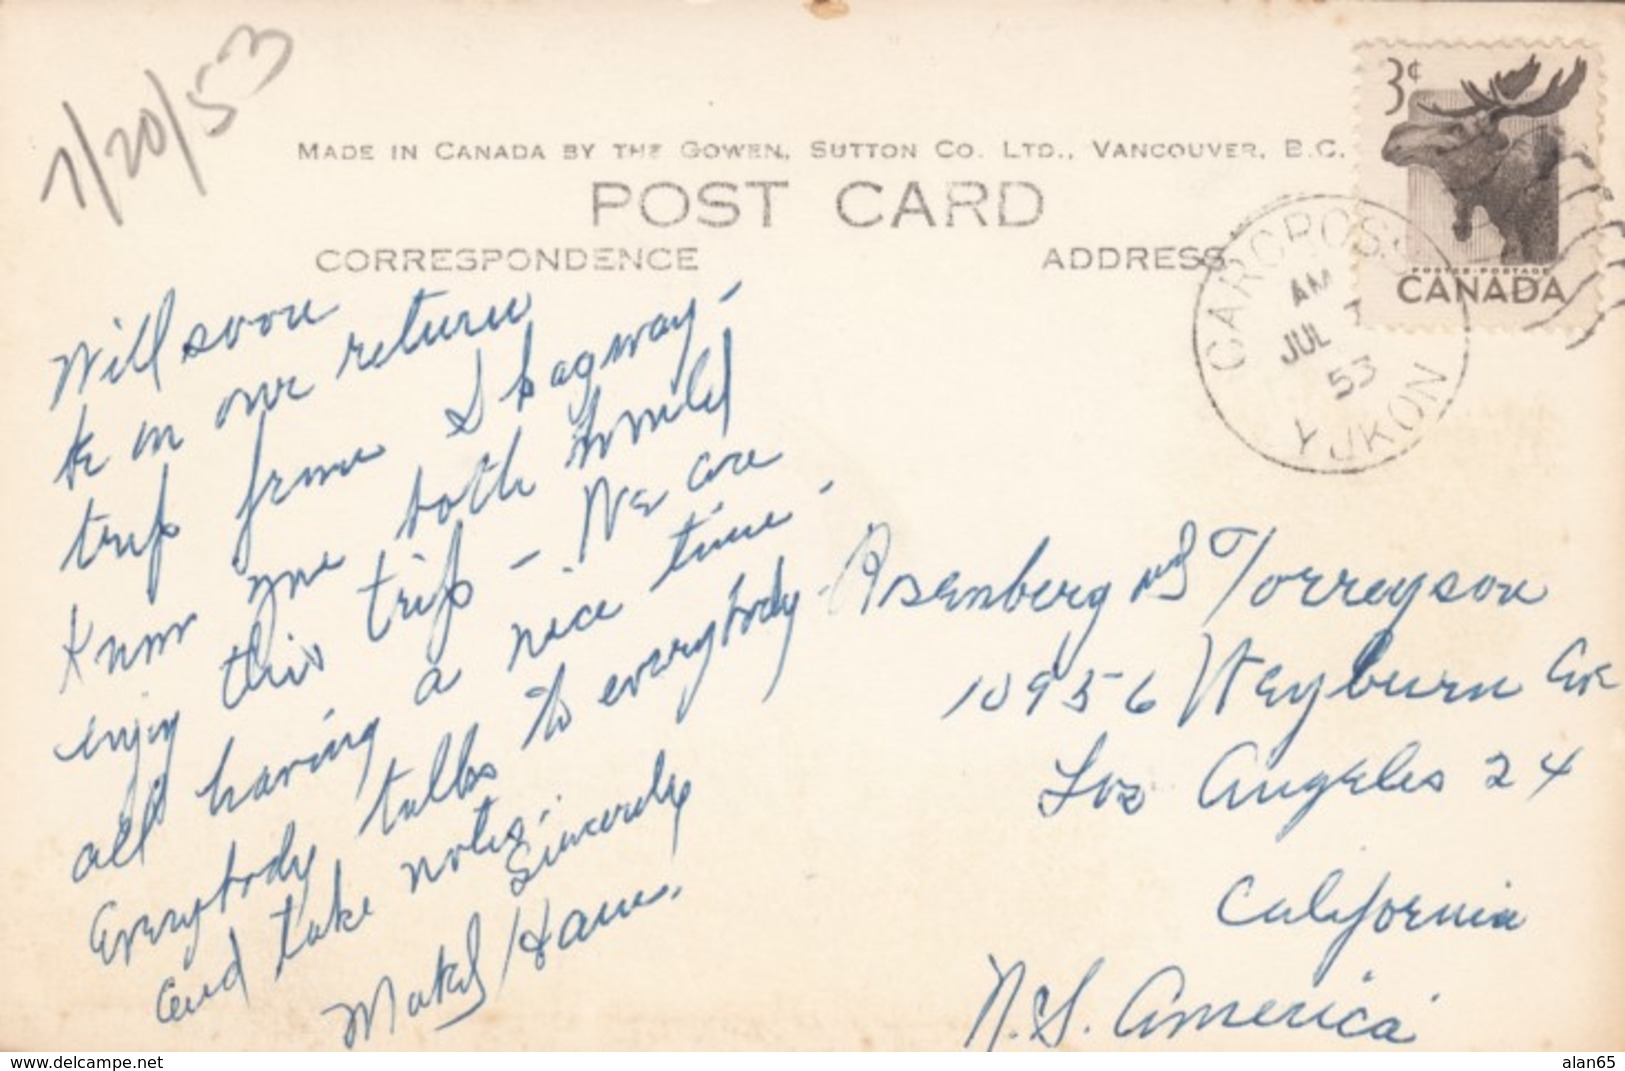 7/20/53
MADE IN CANADA BY THE GOWEN, SUTTON CO. LTD., VANCOUVER, B.C.
POST CARD
CORRESPONDENCE
ADDRESS
3¢
POSTES-POSTAGE
CANADA
CARCROSS
AM
JUL 7
53
YUKON
Will soon
be on our return
trip from Skagway -
Know you both would
enjoy this trip - We are
all having a nice time.
Everybody talks to everybody
and take notes.
Sincerely
Mabel Haws.
Rosenberg and Torreyson
10956 Weyburn Ave
Los Angeles 24
California
U.S. America
www.delcampe.net
alan65